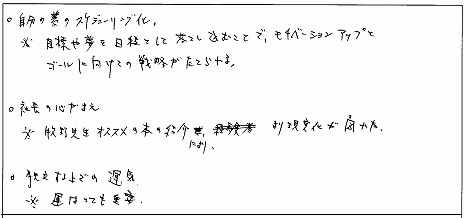 ○ 自分の夢のスケジューリング化。
※ 目標や夢を日程として落とし込むことで、モチベーションアップと
ゴールに向けての戦略がたてられる。
○ 社長の心がまえ
※ 牧野先生オススメの本の紹介により、より現実化が図れた。
○ 独立する上での運気
※ 運はとっても重要。